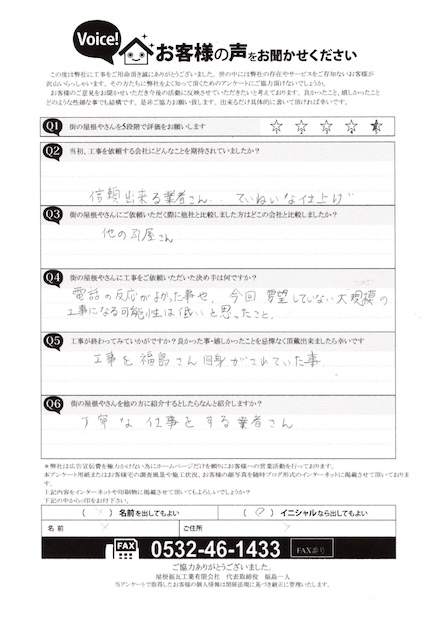 Voice!
お客様の声をお聞かせください
この度は弊社に工事をご用命頂き誠にありがとうございました。世の中には弊社の存在やサービスをご存知ないお客様が
沢山いらっしゃいます。その方たちに弊社をよく知って頂くためのアンケートにご協力頂けないでしょうか。
お客様のご意見をお聞かせいただき今後の活動に反映させていただきたいと考えております。良かったこと、嬉しかったこと
どのような些細な事でも結構です。是非ご協力お願い致します。出来るだけ具体的に書いて頂ければ幸いです。
Q1 街の屋根やさんを5段階で評価をお願いします ☆ ☆ ☆ ☆ ★
Q2 当初、工事を依頼する会社にどんなことを期待されていましたか?
信頼出来る業者さん、、ていねいな仕上げ
Q3 街の屋根やさんにご依頼いただく際に他社と比較しました方はどこの会社と比較しましたか?
他の瓦屋さん
Q4 街の屋根やさんに工事をご依頼いただいた決め手は何ですか?
電話の反応がよかった事や、今回要望していない大規模の
工事になる可能性は低いと思ったこと。
Q5 工事が終わってみていかがですか?良かった事・嬉しかったことを忌憚なく頂戴出来ましたら幸いです
工事を福島さん自身がされていた事
Q6 街の屋根やさんを他の方に紹介するとしたらなんと紹介しますか?
丁寧な仕事をする業者さん
*弊社は広告宣伝費を極力かけない為にホームページだけを頼りにお客様への営業活動を行っております。
本アンケート用紙またはお客様宅の調査風景や施工状況、お客様の顔写真を随時ブログ形式のインターネットに掲載させて頂いておりま
す。
上記内容をインターネットや印刷物に掲載させて頂いてもよろしいでしょうか?
下記の中から○印をお付け下さい。
( ) 名前を出してもよい ( ○ ) イニシャルなら出してもよい
名前 ご住所
FAX 0532-46-1433 FAX番号
ご協力ありがとうございました。
屋根福瓦工業有限会社 代表取締役 福島一人
当アンケートで取得したお客様の個人情報は関係法規に基づき厳正に管理いたします。